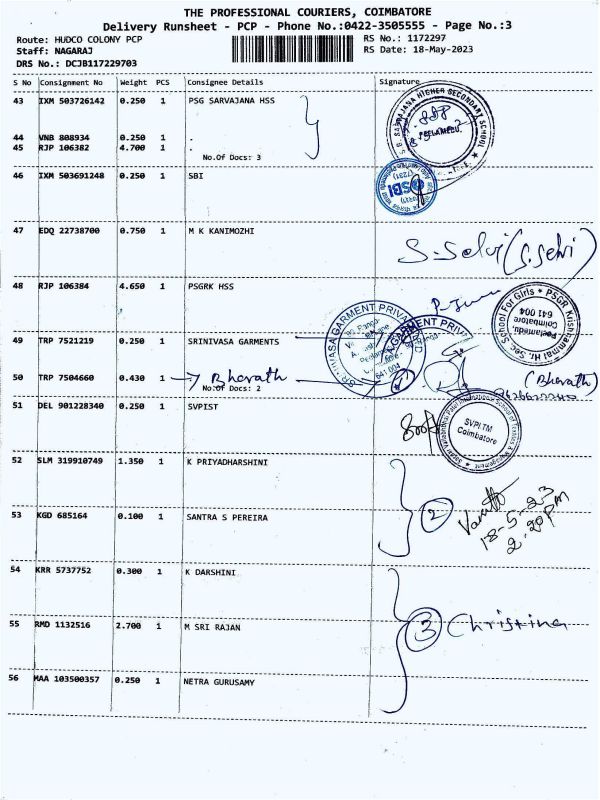 THE PROFESSIONAL COURIERS, COIMBATORE
Delivery Runsheet - PCP - Phone No.:0422-3505555 - Page No.:3
Route: HUDCO COLONY PCP RS No.: 1172297
Staff: NAGARAJ RS Date: 18-May-2023
DRS No.: DCJB117229703
S No Consignment No Weight PCS Consignee Details Signature
43 IXM 503726142 0.250 1 PSG SARVAJANA HSS
44 VNB 808934 0.250 1 .
45 RJP 106382 4.700 1 .
No.Of Docs: 3
46 IXM 503691248 0.250 1 SBI
SBI
47 EDQ 22738700 0.750 1 M K KANIMOZHI
S. Selvi (S. Selvi)
48 RJP 106384 4.650 1 PSGRK HSS
PSGR Krishnammal Hr. Sec. School For Girls
Peelamedu, Coimbatore 641 004
49 TRP 7521219 0.250 1 SRINIVASA GARMENTS
SRINIVASA GARMENT PRIVA
641 004
GARMENT PRIV
50 TRP 7504660 0.430 1 Bharath (Bharath)
No.Of Docs: 2
51 DEL 901228340 0.250 1 SVPIST
SVPITM
Coimbatore
52 SLM 319910749 1.350 1 K PRIYADHARSHINI
2
18-5-23
2.20pm
53 KGD 685164 0.100 1 SANTRA S PEREIRA
54 KRR 5737752 0.300 1 K DARSHINI
55 RMD 1132516 2.700 1 M SRI RAJAN
3 Christina
56 MAA 103500357 0.250 1 NETRA GURUSAMY